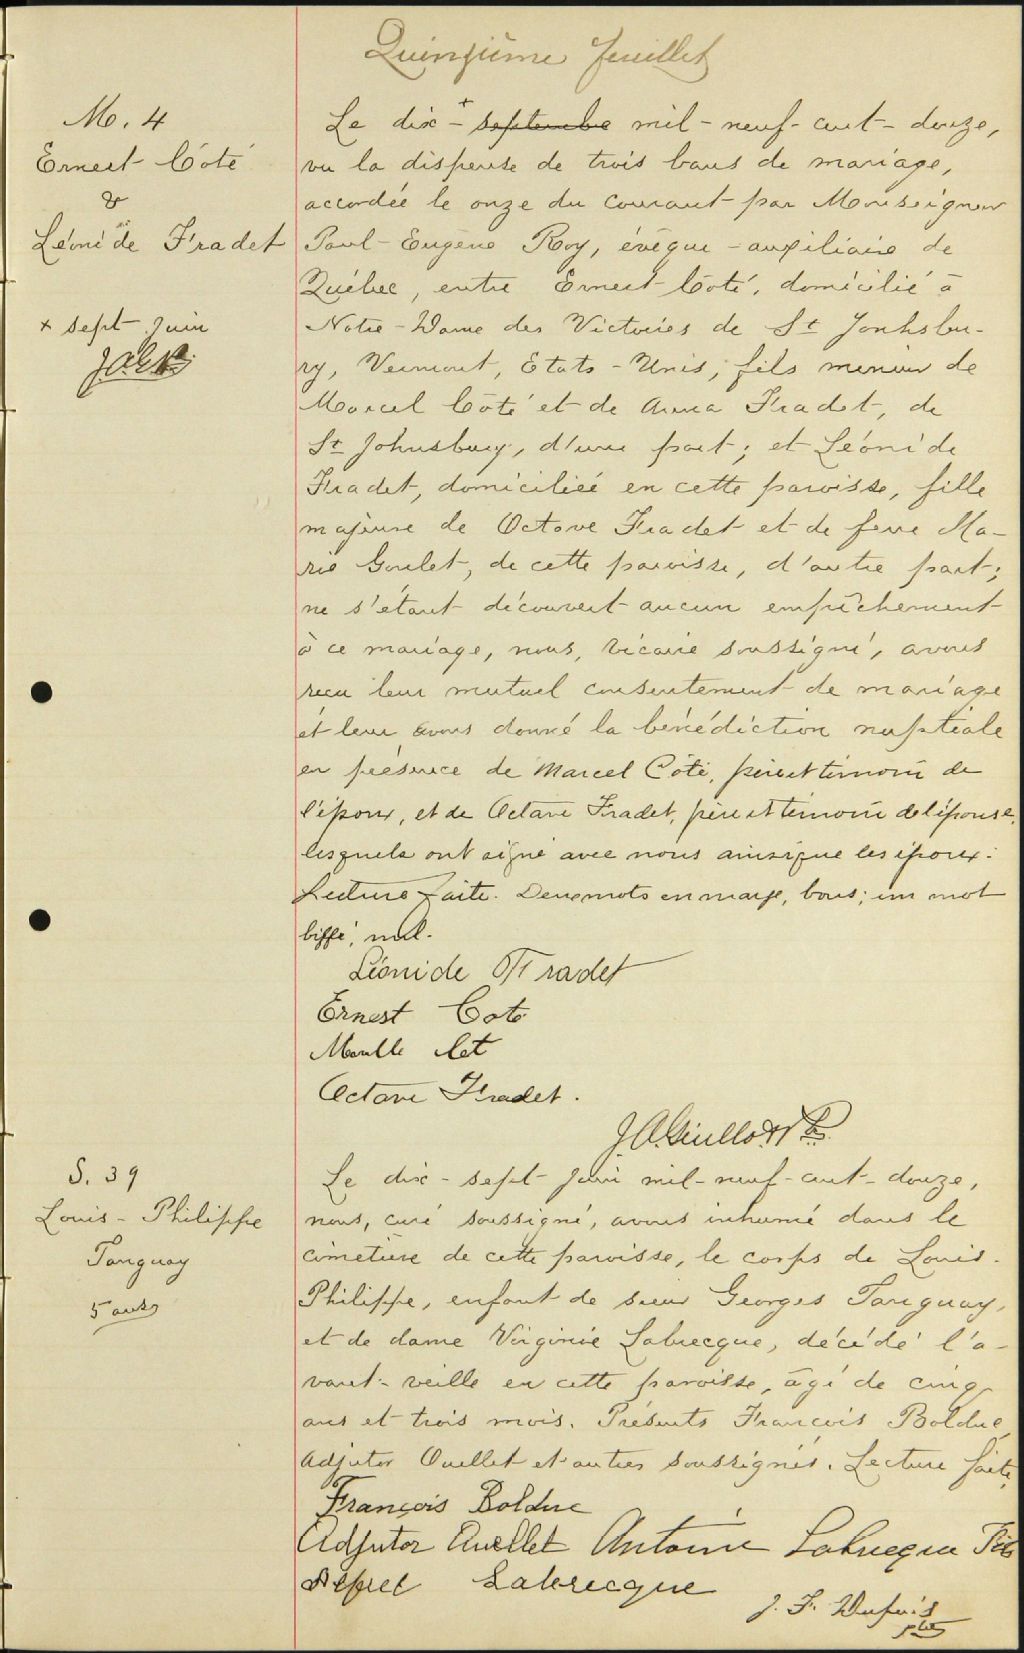 Quinzième feuillet
M. 4
Ernest Côté
&
Léonide Fradet
+ sept juin
Le dix-+ septembre mil-neuf-cent-douze,
vu la dispense de trois bans de mariage,
accordée le onze du courant par Monseigneur
Paul-Eugène Roy, évêque-auxiliaire de
Québec, entre Ernest Côté, domicilié à
Notre-Dame des Victoires de St Jonhsbu-
ry, Vermont, Etats-Unis, fils mineur de
Marcel Côté et de Anna Fradet, de
St Johnsbury, d'une part; et Léonide
Fradet, domiciliée en cette paroisse, fille
majeure de Octave Fradet et de feue Ma-
rie Goulet, de cette paroisse, d'autre part;
ne s'étant découvert aucun empêchement
à ce mariage, nous, vicaire soussigné, avons
reçu leur mutuel consentement de mariage
et leur avons donné la bénédiction nuptiale
en présence de Marcel Côté, père et témoin de
l'époux, et de Octave Fradet, père et témoin de l'épouse,
lesquels ont signé avec nous ainsi que les époux.
Lecture faite. Deux mots en marge, bons; un mot
biffé, nul.
Léonide Fradet
Ernest Coté
Octave Fradet.
S. 39
Louis-Philippe
Tanguay
5 ans
Le dix-sept juin mil-neuf-cent-douze,
nous, curé soussigné, avons inhumé dans le
cimetière de cette paroisse, le corps de Louis-
Philippe, enfant de sieur Georges Tanguay,
et de dame Virginie Labrecque, décédé l'a-
vant-veille en cette paroisse, âgé de cinq
ans et trois mois. Présents François Bolduc,
Adjutor Ouellet et autres soussignés. Lecture faite.
François Bolduc
Adjutor Ouellet Antoine Labrecque Fils
Labrecque
J. F. Dupuis
ptre